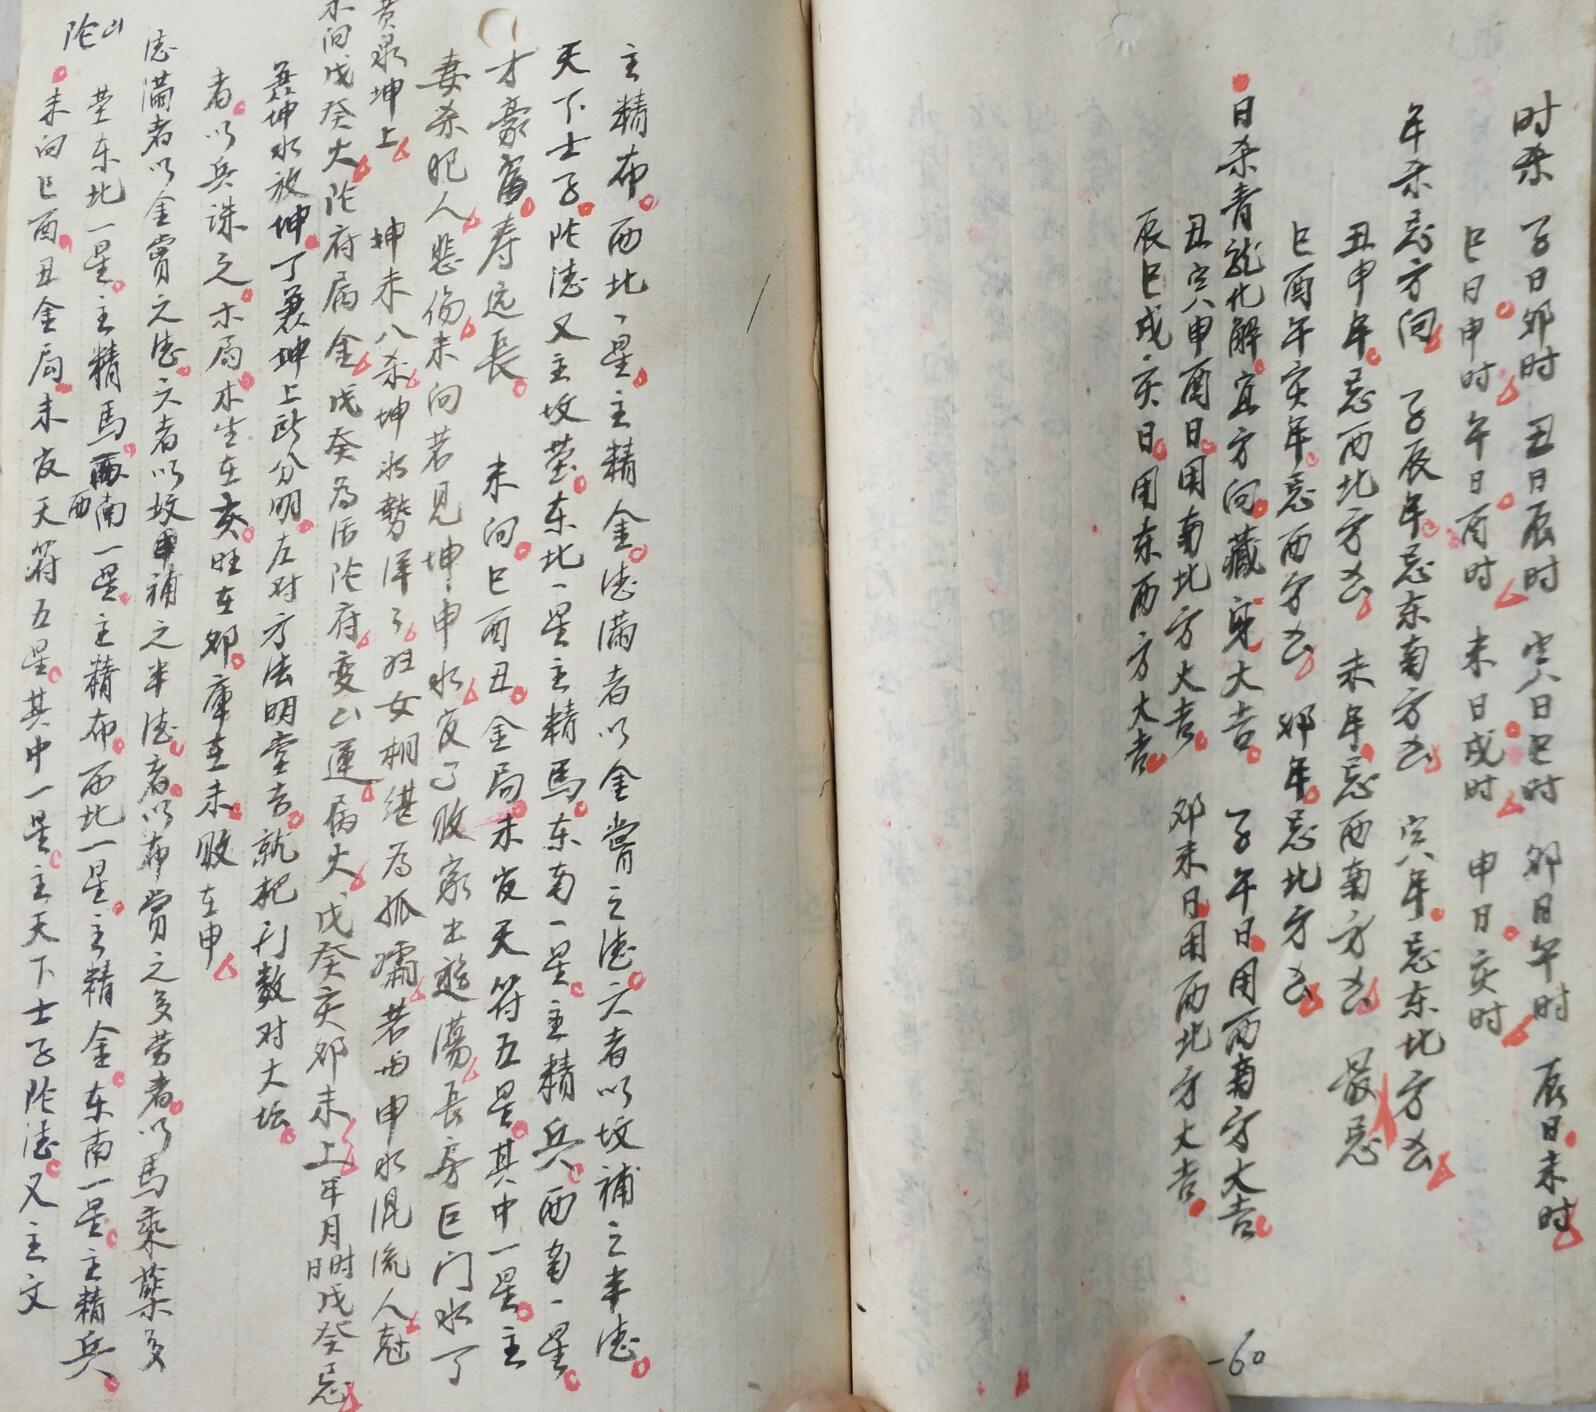 时杀 子日卯时 丑日辰时 寅日巳时 卯日午时 辰日未时
巳日申时 午日酉时 未日戌时 申日亥时
年杀忌方向 子辰年忌东南方凶 寅年忌东北方凶
丑申年忌西北方凶 未年忌西南方凶 最忌
巳酉午亥年忌西方凶 卯年忌北方凶
日杀青龙化解宜方向藏身大吉 子午日用西南方大吉
丑寅申酉日用南北方大吉 卯未日用西北方大吉
辰巳戌亥日用东西方大吉
主精布西北一星主精金德满者以金赏之德欠者以坟补之半德
天下士子陀德又主坟茔东北一星主精馬东南一星主精兵西南一星
才豪富寿远長 未向巳酉丑金局未发天符五星其中一星主
妻杀犯人悲伤未向若见坤申水发了败家出遊蕩長房巨门水了
黄泉坤上 坤未八杀坤水势洋々 女相继为孤孀若由申水混流人
未向戊癸火陀府属金戊癸为 陀府变山運属火戊癸亥卯未上年月日时戊癸忌
兼坤水放坤丁兼坤上 分明左对方法明堂吉就把 数对大坛
者以兵誅之木局木生在亥旺在卯庫在未败在申
德满者以金賞之德欠者以坟 補之半德者以布賞之多劳者以馬乘 多
茔东北一星主精馬西南一星主精布西北一星主精金东南一星主精兵
陀山 未向巳酉丑金局未发天符五星其中一星主天下士子陀德又主文
-60